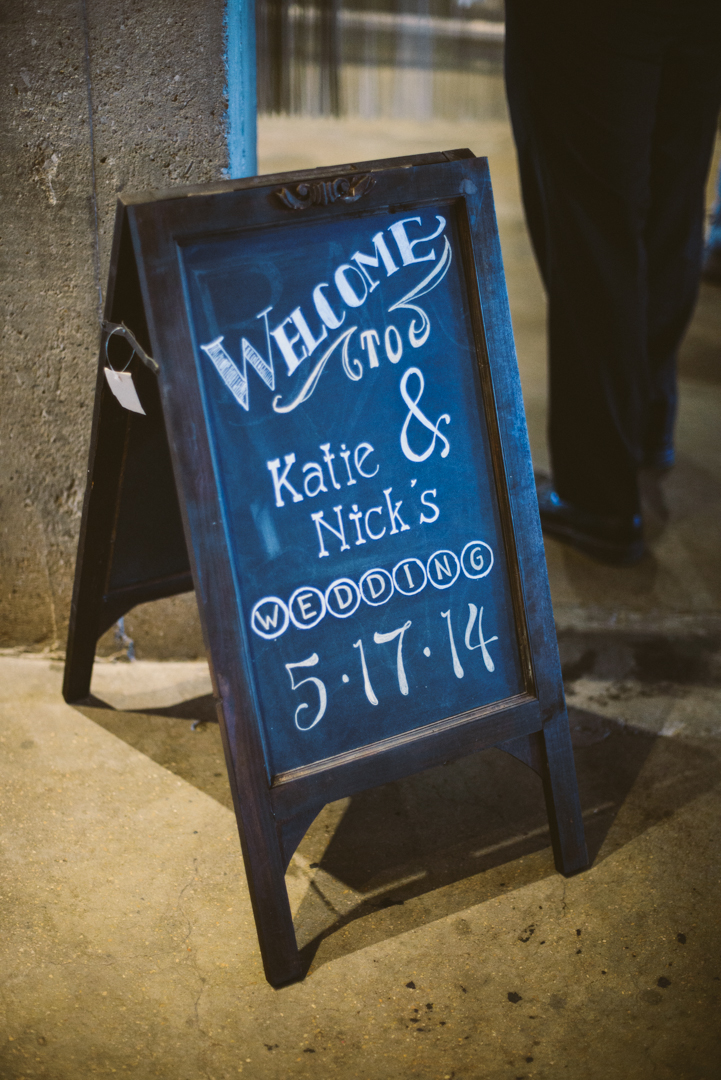 WELCOME
TO
&
Katie
Nick's
WEDDING
5·17·14